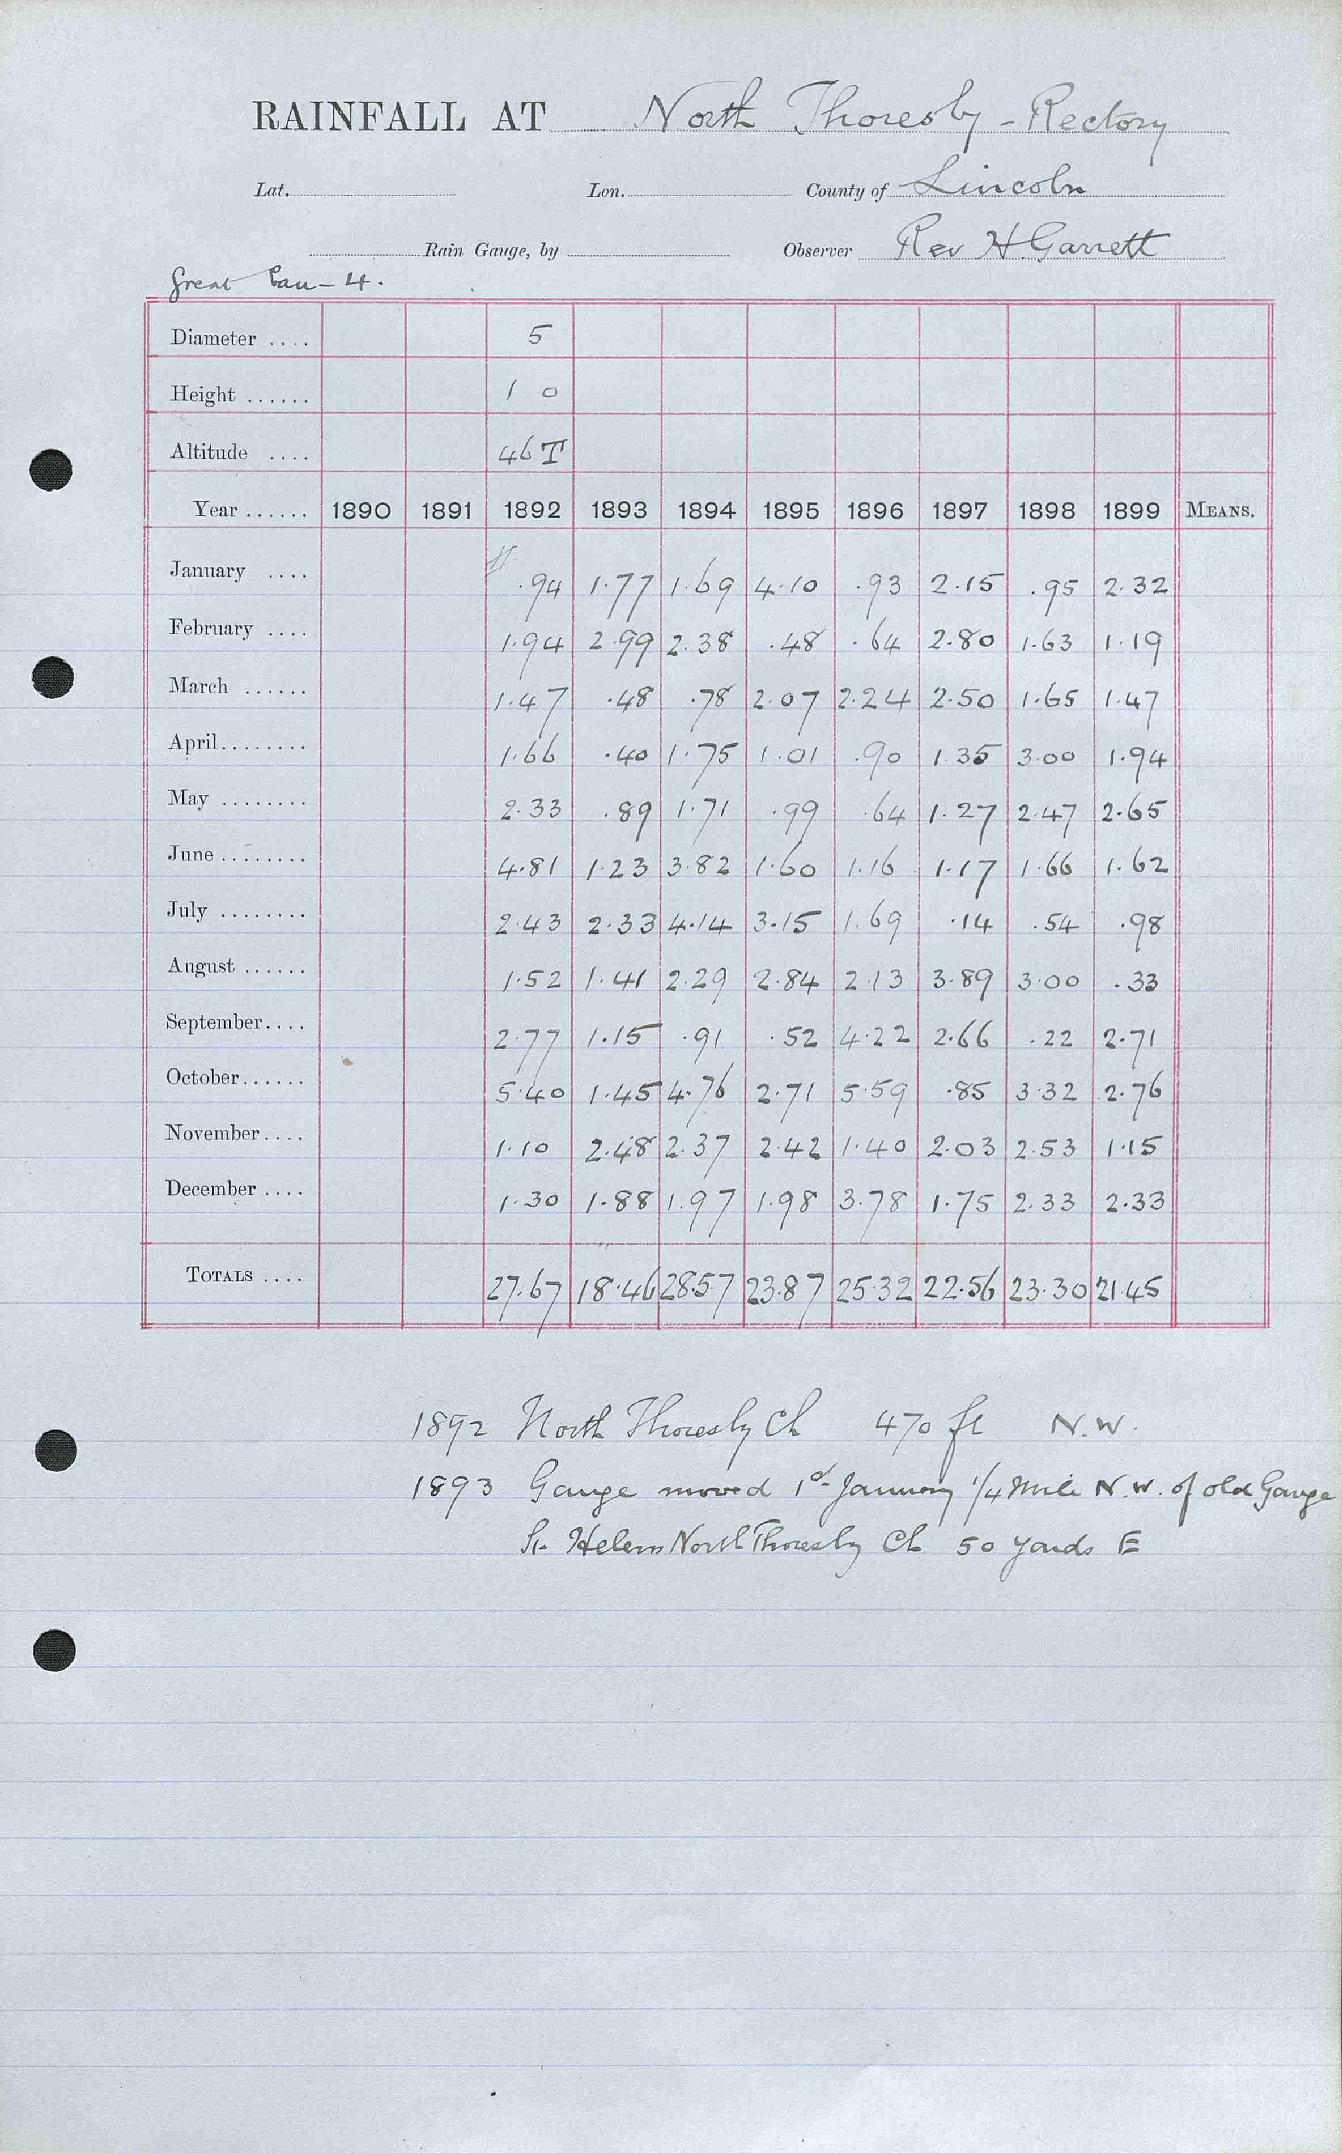 RAINFALL AT North Thoresby - Rectory
Lat. Lon. County of Lincoln
Rain Gauge, by Observer Rev H. Garrett
Great 4.
Diameter .... 5
Height ...... 1 0
Altitude .... 46 T
Year ...... 1890 1891 1892 1893 1894 1895 1896 1897 1898 1899 MEANS.
January .... .94 1.77 1.69 4.10 .93 2.15 .95 2.32
February .... 1.94 2.99 2.38 .48 .64 2.80 1.63 1.19
March ...... 1.47 .48 .78 2.07 2.24 2.50 1.65 1.47
April........ 1.66 .40 1.75 1.01 .90 1.35 3.00 1.94
May ........ 2.33 .89 1.71 .99 .64 1.27 2.47 2.65
June ........ 4.81 1.23 3.82 1.60 1.16 1.17 1.66 1.62
July ........ 2.43 2.33 4.14 3.15 1.69 .14 .54 .98
August ...... 1.52 1.41 2.29 2.84 2.13 3.89 3.00 .33
September.... 2.77 1.15 .91 .52 4.22 2.66 .22 2.71
October...... 5.40 1.45 4.76 2.71 5.59 .85 3.32 2.76
November.... 1.10 2.48 2.37 2.42 1.40 2.03 2.53 1.15
December .... 1.30 1.88 1.97 1.98 3.78 1.75 2.33 2.33
TOTALS .... 27.67 18.46 28.57 23.87 25.32 22.56 23.30 21.45
1892 North Thoresby Ch 470 ft N.W.
1893 Gauge moved 1st January 1/4 Mile N.W. of old Gauge
St. Helens North Thoresby Ch 50 yards E